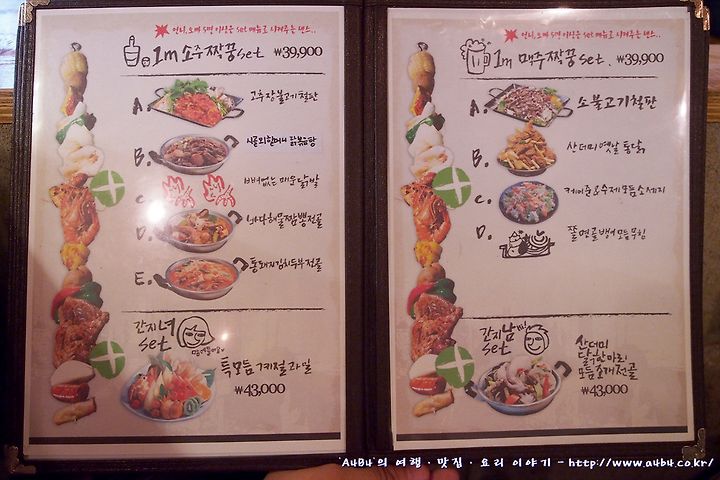 언니, 오빠 5명 이상은 set 메뉴로 시켜주는 센스..
1m 소주짝꿍set ₩39,900
A. 고추장불고기철판
B. 시골외할머니 닭볶음탕
C. 뼈없는 매운닭발
D. 바다해물짬뽕전골
E. 통돼지김치두부전골
간지녀 set
특모듬 계절과일
₩43,000
언니, 오빠 5명 이상은 set 메뉴로 시켜주는 센스..
1m 맥주짝꿍set. ₩39,900
A. 소불고기철판
B. 산더미 옛날 통닭
C. 케이준&수제모듬소세지
D. 쫄면골뱅이모듬무침
간지남 set
산더미
닭한마리
모듬조개전골
₩43,000
'AuBu'의 여행·맛집·요리 이야기 - http://www.aubu.co.kr/